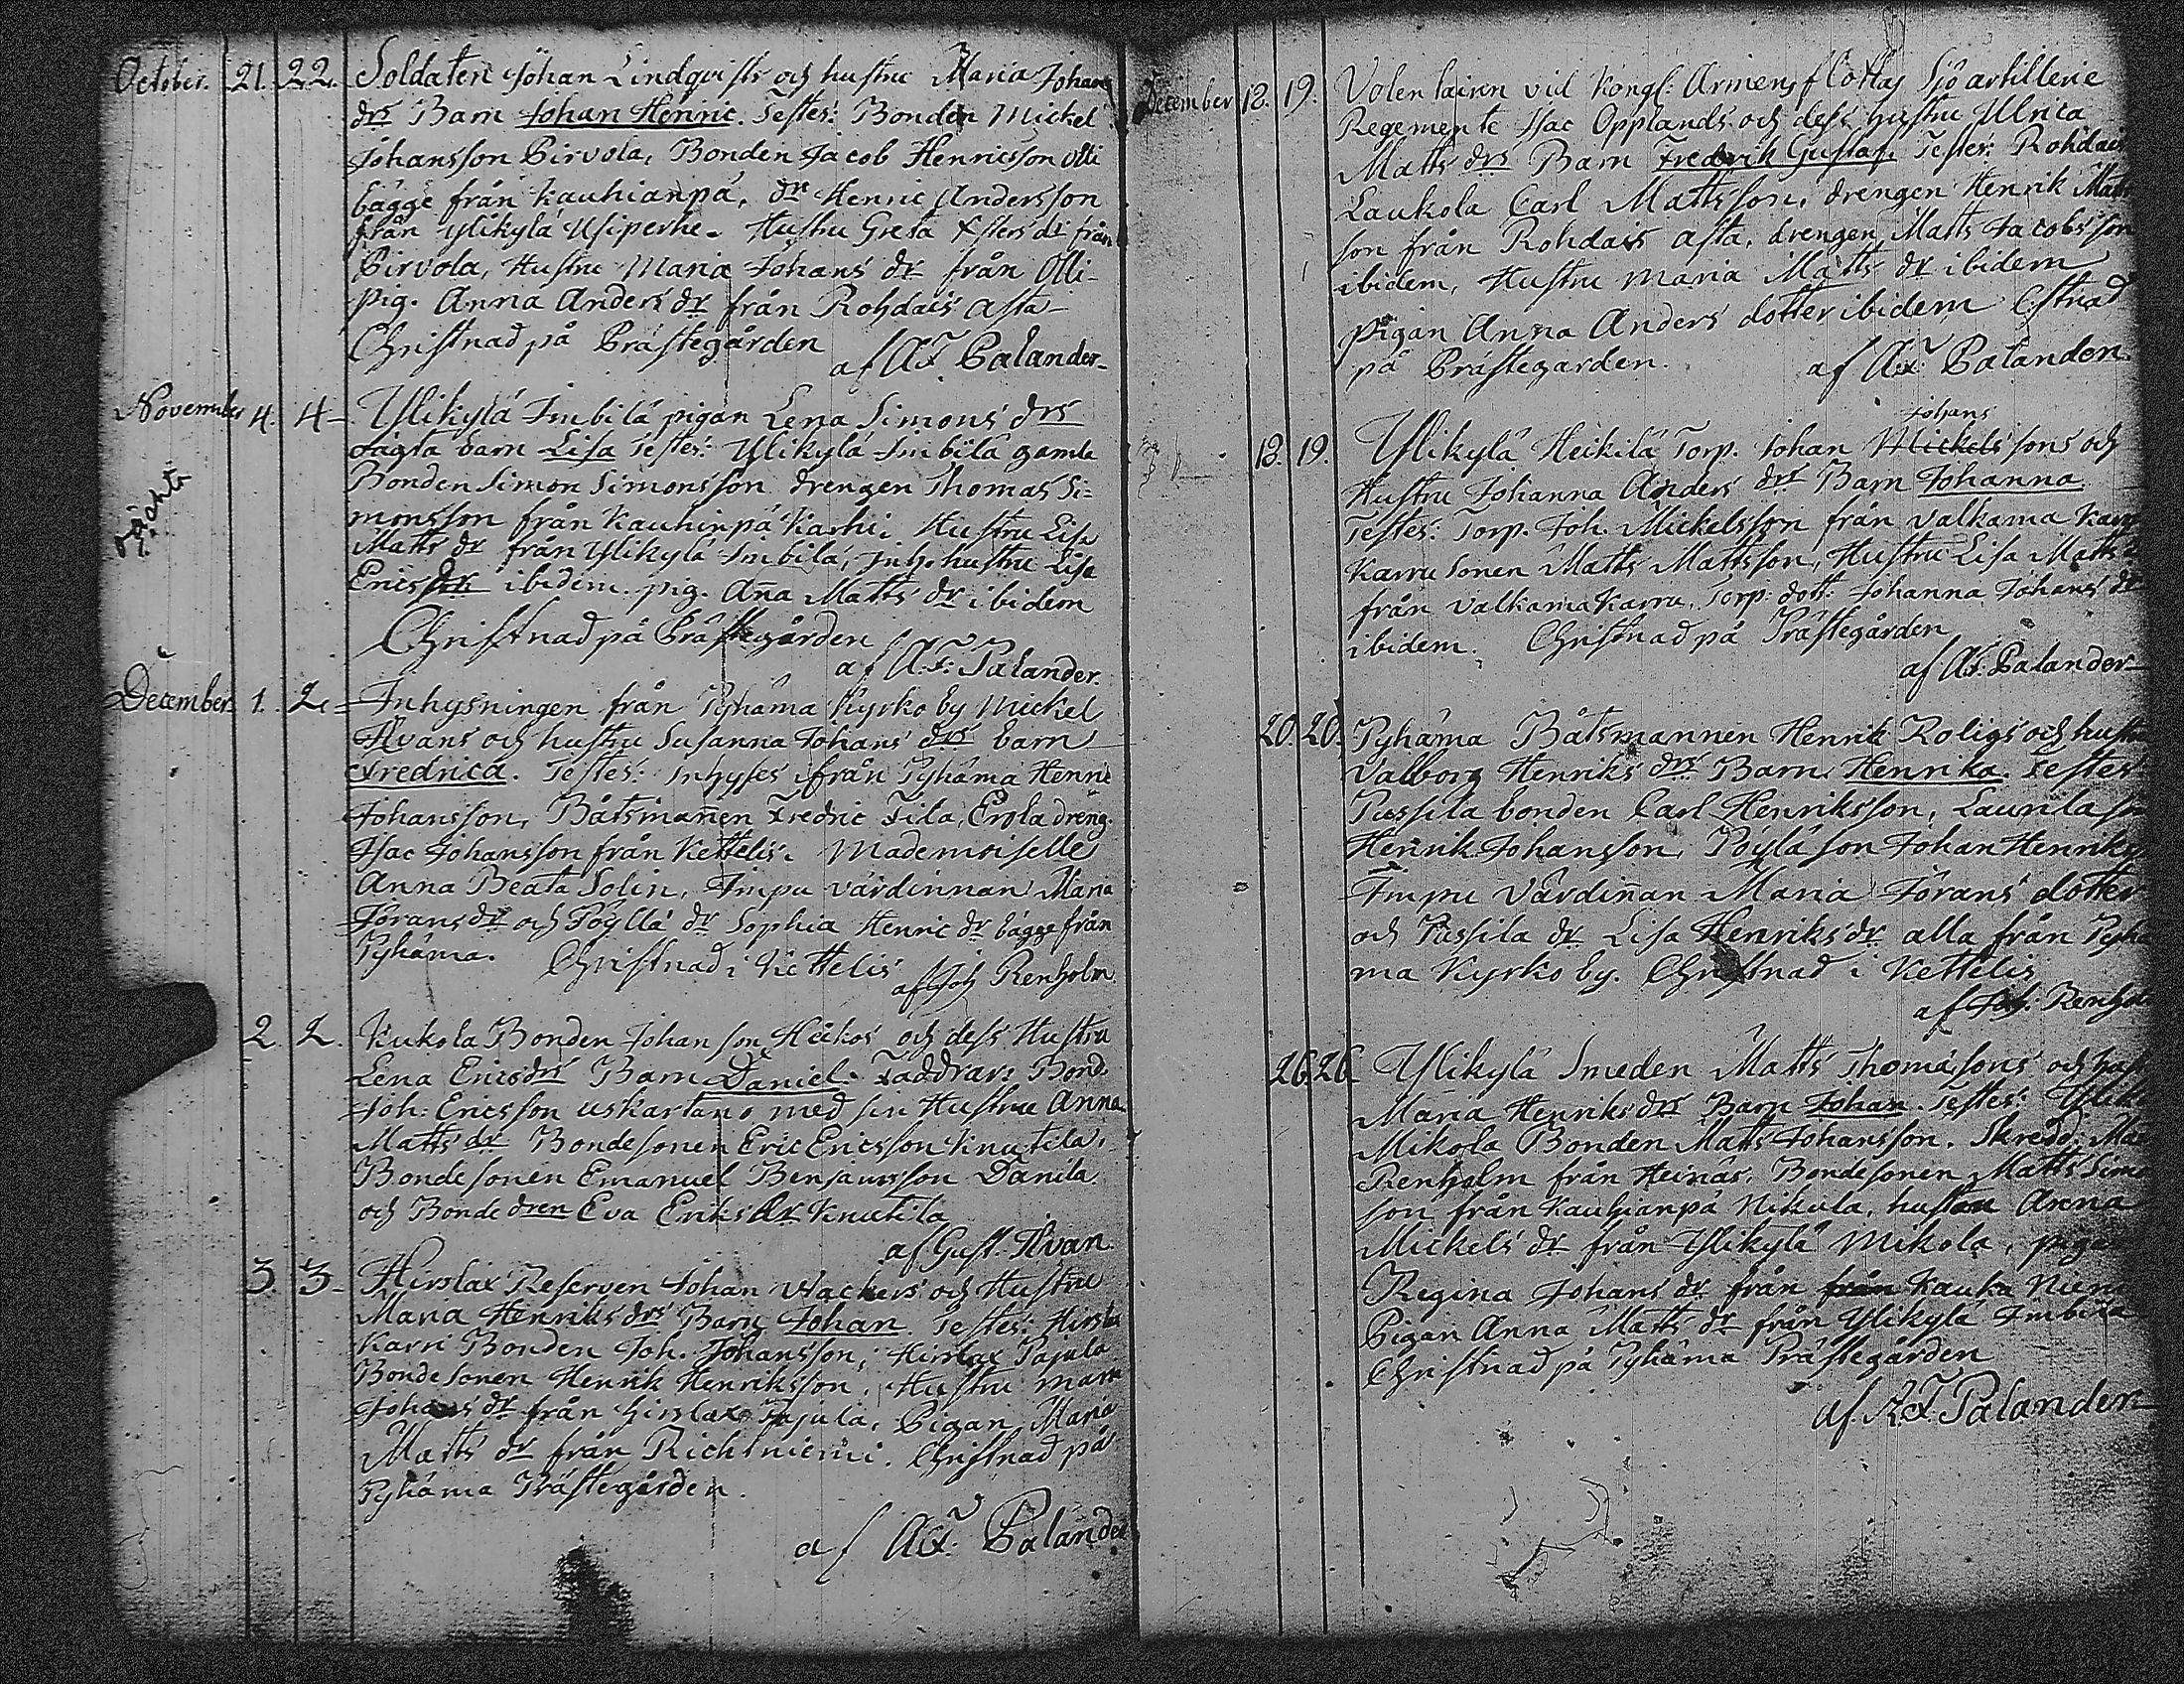 October. 21. 22. Soldaten Johan Lindqvists och hustru Maria Johans
drs Barn Johan Henric. Testes: Bonden Mickel
Johansson Pirvola, Bonden Jacob Henricsson Olli
bägge från Kauhianpä, dr Henric Andersson
från Ylikylä Usiperhe. Hustru Greta dr från
Pirvola, Hustru Maria Johans dr från Olli-
Pig. Anna Anders dr från Rohdais asta-
Christnad på Prästegården
af A.F. Palander-
November 4. 4- Ylikylä Imbilä pigan Lena Simons drs
oägta barn Lisa Testes: Ylikylä Imbilä gamla
oächta
Bonden Simon Simonsson drengen Thomas Si=
monsson från Kauhinpä Karhi. Hustru Lisa
Matts dr från Ylikylä Imbilä, Inh. hustru Lisa
Erics ibidem. pig. Aña Matts dr ibidem
Christnad på Prästegården
af A.F. Palander.
December. 1. 2. Inhysningen från Pyhäma Kyrko by Mickel
Flvans och hustru Susanna Johans drs barn
Fredrica. Testes: Inhyses från Pyhäma Henric
Johansson, Båtsmañen Fredric Fila, Erola dreng.
Isac Johansson från Kettelis. Mademoiselle
Anna Beata Solin, Impu värdinnan Maria
Görans dr och Pöyllä dr Sophia Henric dr bägge från
Pyhäma. Christnad i Kettelis
af Joh Renholm.
2. 2. Kukola Bonden Johan son Heikos och dess Hustru
Lena Erics drs Barn Daniel. Faddrar: Bond.
Joh: Ericsson uskartano med sin Hustru Anna
Matts dr Bondesonen Eric Ericsson Knutila,
Bondesonen Emanuel Benjamsson Danila
och Bonde dren Eva Eriks dr Knutila
af Gust. Flvan.
3. 3- Hirslax Reserven Johan Wackers och Hustru
Maria Henriks drs Barn Johan. Testes: Hirslax
Karri Bonden Joh. Johansson, Hirslax Pajula
Bondesonen Henrik Henriksson, Hustru Maria
Johans dr från Hirslax Pajula, Pigan Maria
Matts dr från Richtniemi. Christnad på
Pyhäma Prästegården.
af A.F. Palander
December 18. 19. Volentairen vid Kongl: Armens flottas Sjö artillerie
Regemente Isac Opplands och dess hustru Ulrica
Matts drs Barn Fredrik Gustaf. Testes: Rohdais
Laukola Carl Mattsson, drengen Henrik Matts
son från Rohdais asta, drengen Matts Jacobsson
ibidem, Hustru Maria Matts dr ibidem
Pigan Anna Anders dotter ibidem Cstnad
på Prästegården. af A.F. Palander
Johans
18. 19. Ylikylä Heikilä Torp. Johan Mickels sons och
Hustru Johanna Anders drs Barn Johanna
Testes: Torp. Joh. Mickelsson från Valkama Karru
Karru sonen Matts Mattsson, Hustru Lisa Matts d
från Valkama Karru, Torp: dott: Johanna Johans dr
ibidem. Christnad på Prästegården
af A.F. Palander-
20. 20. Pyhäma Båtsmannen Henrik Roligs och hustru
Valborg Henriks drs Barn Henrika. Testes:
Pussila bonden Carl Henriksson, Laurila son
Henrik Johansson, Pöylä son Johan Henriks
Impu Värdiñan Maria Görans dotter
och Pussila dr Lisa Henriks dr alla från Pyhä
ma Kyrko by. Christnad i Kettelis
af Joh: Renhol
26. 26. Ylikylä Smeden Matts Thomässons och hust
Maria Henriks drs Barn Johan. Testes: Ylik
Mikola Bonden Matts Johansson. Skredd. Mat
Renholm från Heinäs, Bondesonen Matts Simo
son från Kauhianpä Nikula, hustru Anna
Mickels dr från Ylikylä Mikola, pigan
Regina Johans dr från från Kauka Niemi
Pigan Anna Matts dr från Ylikylä Imbilä
Christnad på Pyhäma Prästegården
af A.F. Palander